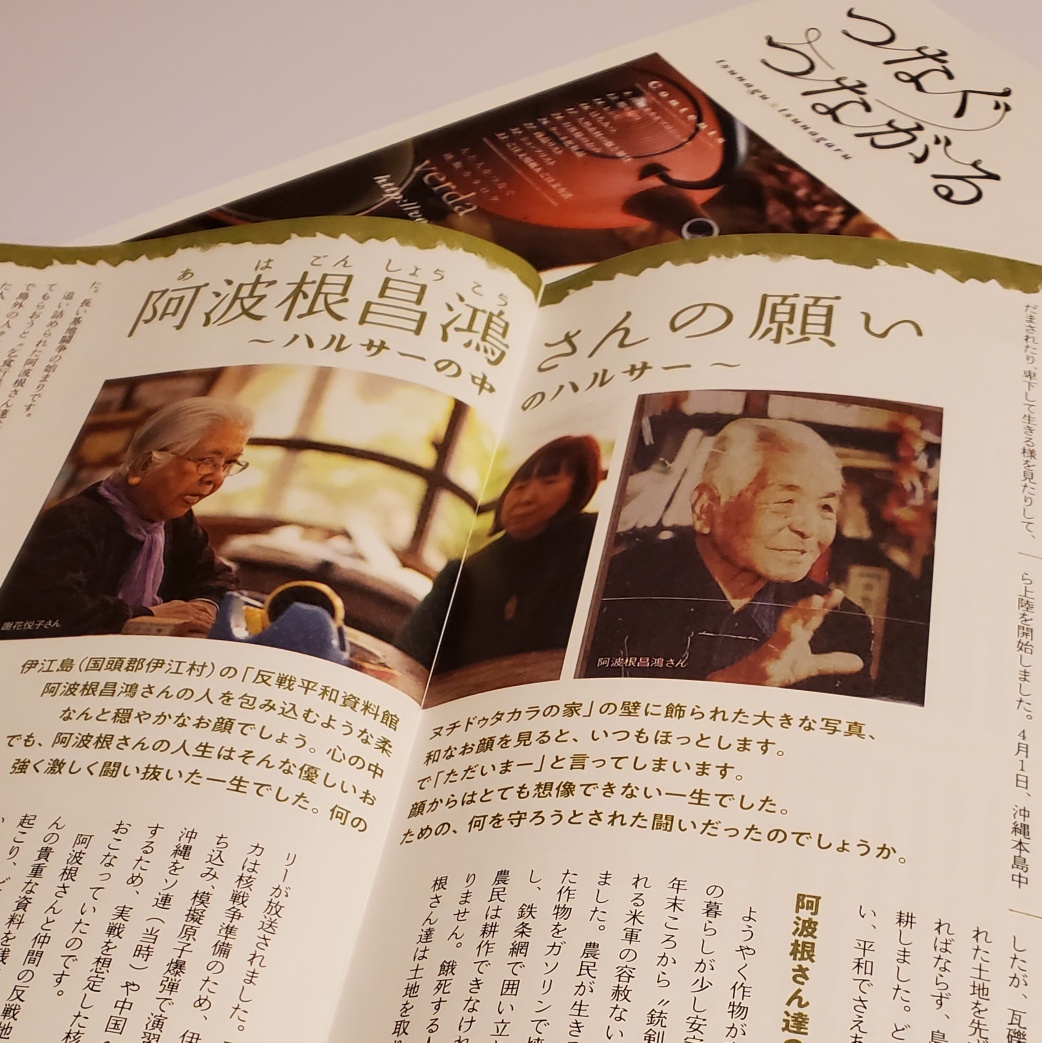 つなぐ
つながる
tsunagu & tsunagaru
Contents
verda
http://ve
あ は ごん しょう こう
阿波根昌鴻さんの願い
～ハルサーの中のハルサー～
謝花悦子さん
阿波根昌鴻さん
伊江島（国頭郡伊江村）の「反戦平和資料館 ヌチドゥタカラの家」の壁に飾られた大きな写真、
阿波根昌鴻さんの人を包み込むような柔和なお顔を見ると、いつもほっとします。
なんと穏やかなお顔でしょう。心の中で「ただいまー」と言ってしまいます。
でも、阿波根さんの人生はそんな優しいお顔からはとても想像できない一生でした。
強く激しく闘い抜いた一生でした。何のための、何を守ろうとされた闘いだったのでしょうか。
だまされたり、卑下して生きる様を見たりして、
ら上陸を開始しました。4月1日、沖縄本島中
したが、瓦礫
れた土地を先ず
ればならず、島
耕しました。ど
い、平和でさえあ
阿波根さん達の
ようやく作物が
の暮らしが少し安定
年末ころから〝銃剣
れる米軍の容赦ない
ました。農民が生き
た作物をガソリンで焼
し、鉄条網で囲い立
農民は耕作できなけれ
りません。餓死する人
根さん達は土地を取り
た。長い基地闘争の始まりです。
追い詰められた阿波根さん達
てもらおうと〝乞食行
リーが放送されました。
カは核戦争準備のため、伊
ち込み、模擬原子爆弾で演習
沖縄をソ連（当時）や中国
するため、実戦を想定した核
おこなっていたのです。
阿波根さんと仲間の反戦地
んの貴重な資料を残
起こり、ど